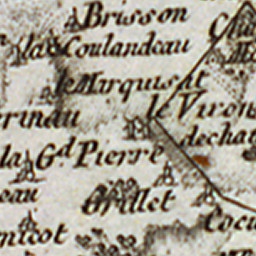 Brisson
la Coulandeau
le Mirquisat
le Viron
rinau
dechat
la Gd Pierre
eau
Grillet
Cocu
nicot